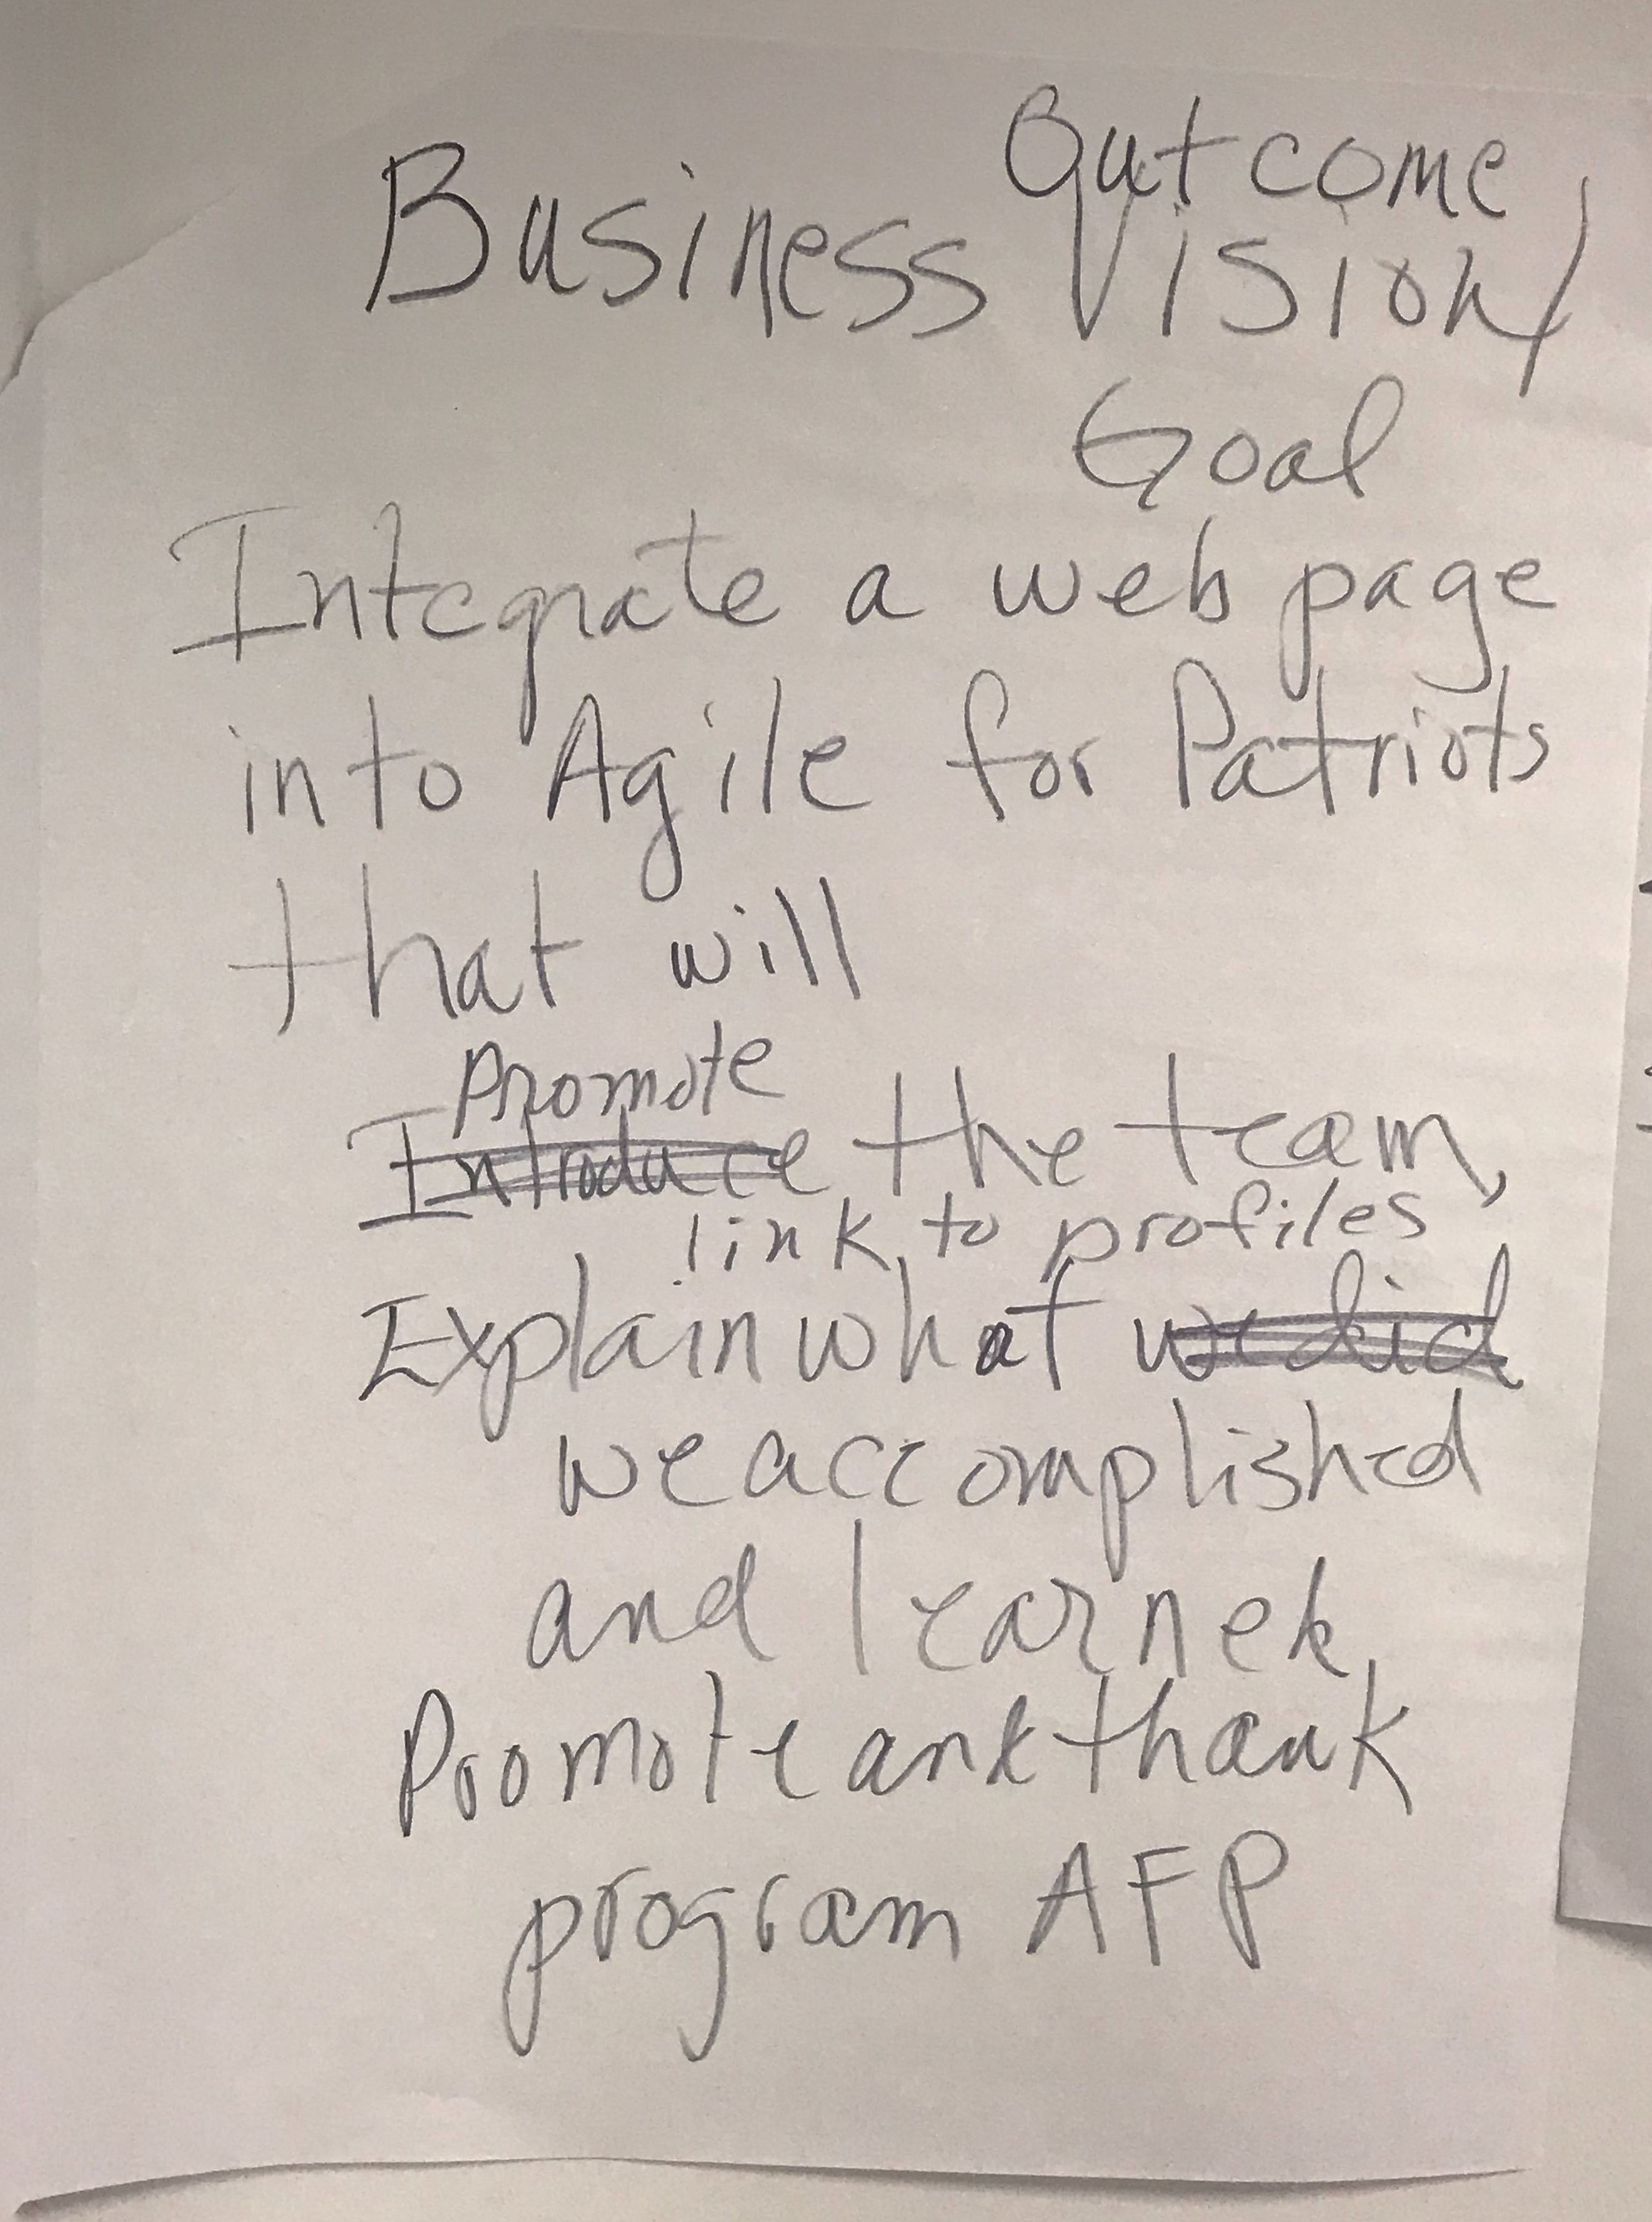 Outcome
Business Vision/
Goal
Integrate a web page
into Agile for Patriots
that will
Promote
Introduce the team,
link to profiles
Explain what we did
we accomplished
and learned
Promote and thank
program AFP